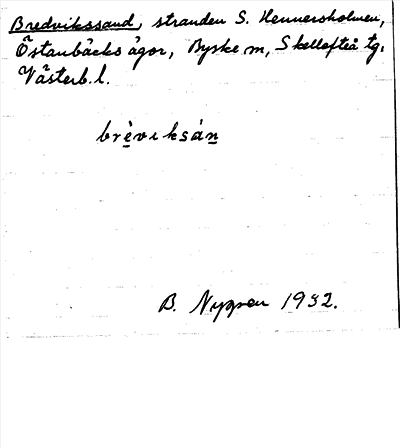 Bredvikssand, stranden S. Hennersholmen,
Östanbäcks ägor, Byske sn, Skellefteå tg.
Västerb. l.
brèviksán
B. Nygren 1932.